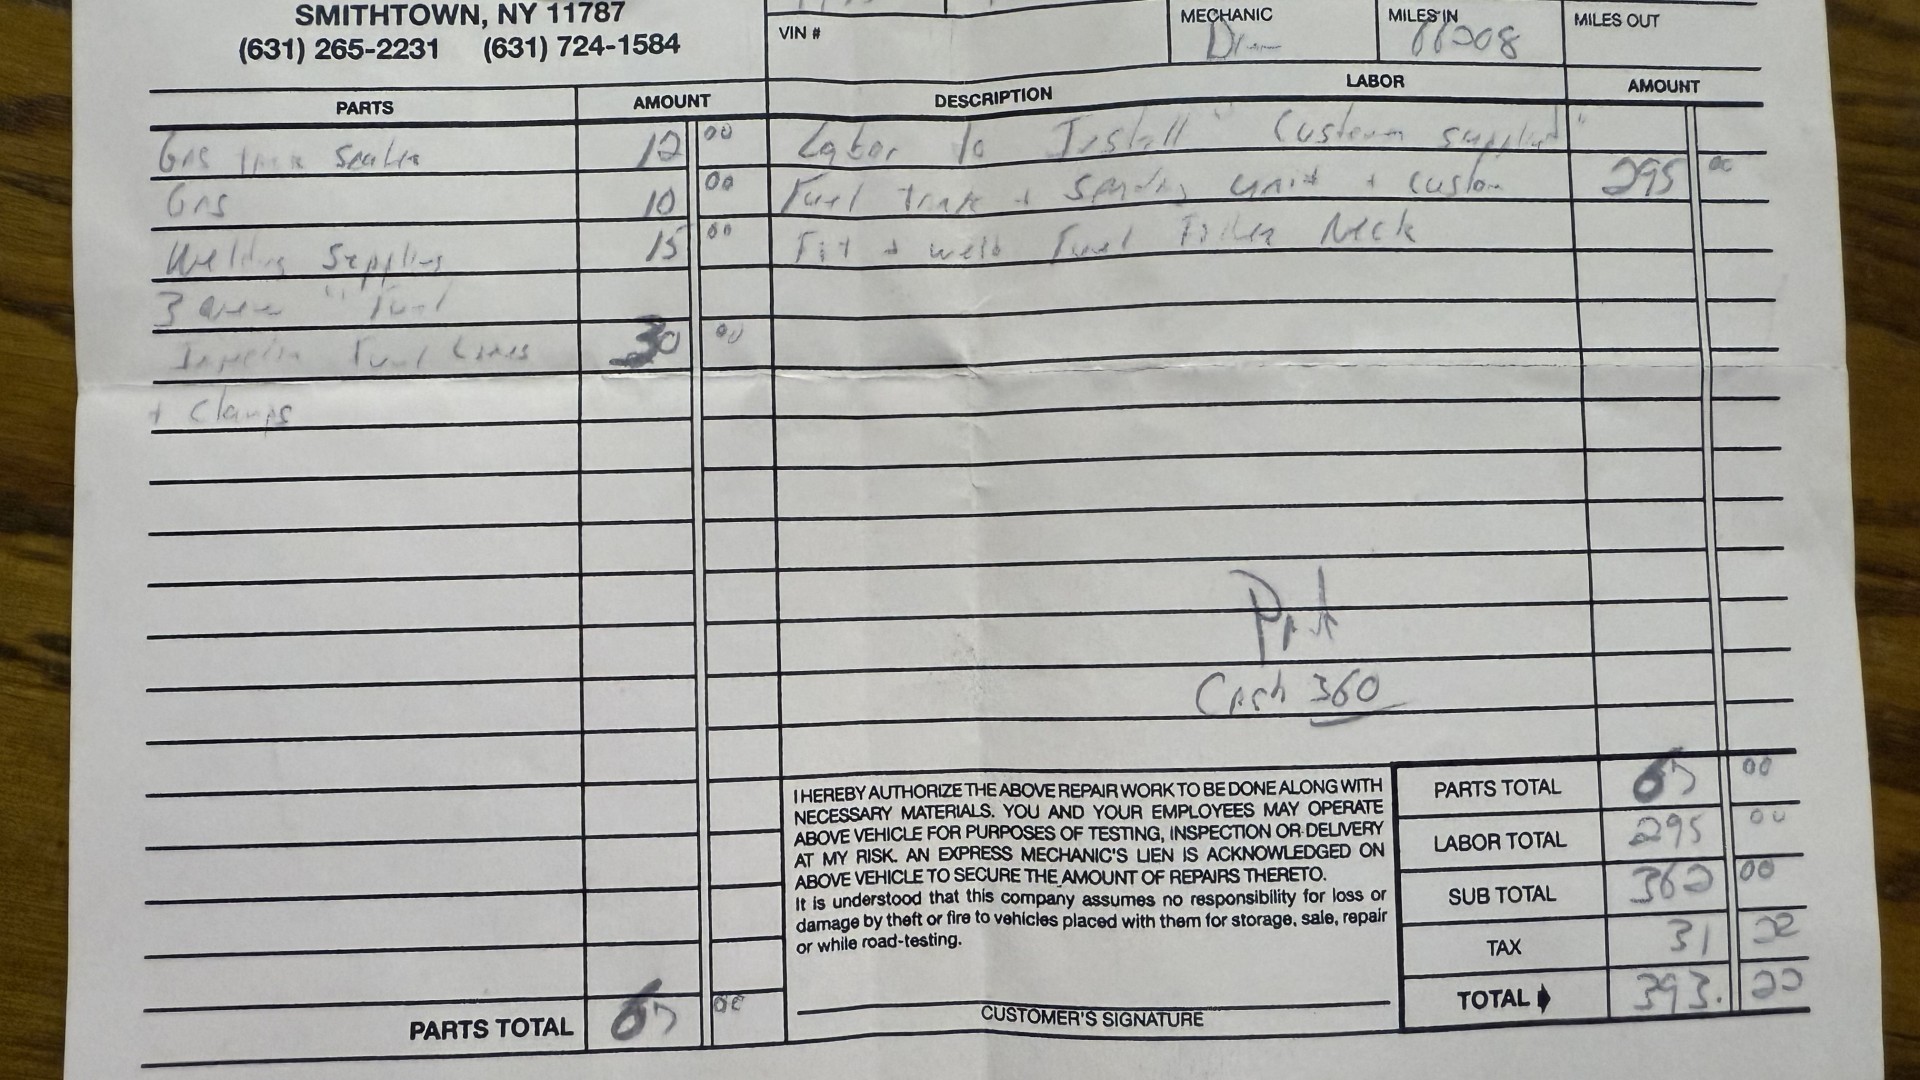 SMITHTOWN, NY 11787
(631) 265-2231 (631) 724-1584
VIN #
MECHANIC
MILES IN
66208
MILES OUT
PARTS AMOUNT DESCRIPTION LABOR AMOUNT
Gas tank Sealer 12 00 Labor to Install "Custom supplied"
Gas 10 00 Fuel tank + Sending unit + custom 295 00
Welding Supplies 15 00 Fit + weld Fuel Filler Neck
3 Fuel
Injection Fuel Lines 30 00
+ Clamps
Cash 360
I HEREBY AUTHORIZE THE ABOVE REPAIR WORK TO BE DONE ALONG WITH
NECESSARY MATERIALS. YOU AND YOUR EMPLOYEES MAY OPERATE
ABOVE VEHICLE FOR PURPOSES OF TESTING, INSPECTION OR DELIVERY
AT MY RISK. AN EXPRESS MECHANIC'S LIEN IS ACKNOWLEDGED ON
ABOVE VEHICLE TO SECURE THE AMOUNT OF REPAIRS THERETO.
It is understood that this company assumes no responsibility for loss or
damage by theft or fire to vehicles placed with them for storage, sale, repair
or while road-testing.
CUSTOMER'S SIGNATURE
PARTS TOTAL 67 00
LABOR TOTAL 295 00
SUB TOTAL 362 00
TAX 31 22
TOTAL 393. 22
PARTS TOTAL 67 00